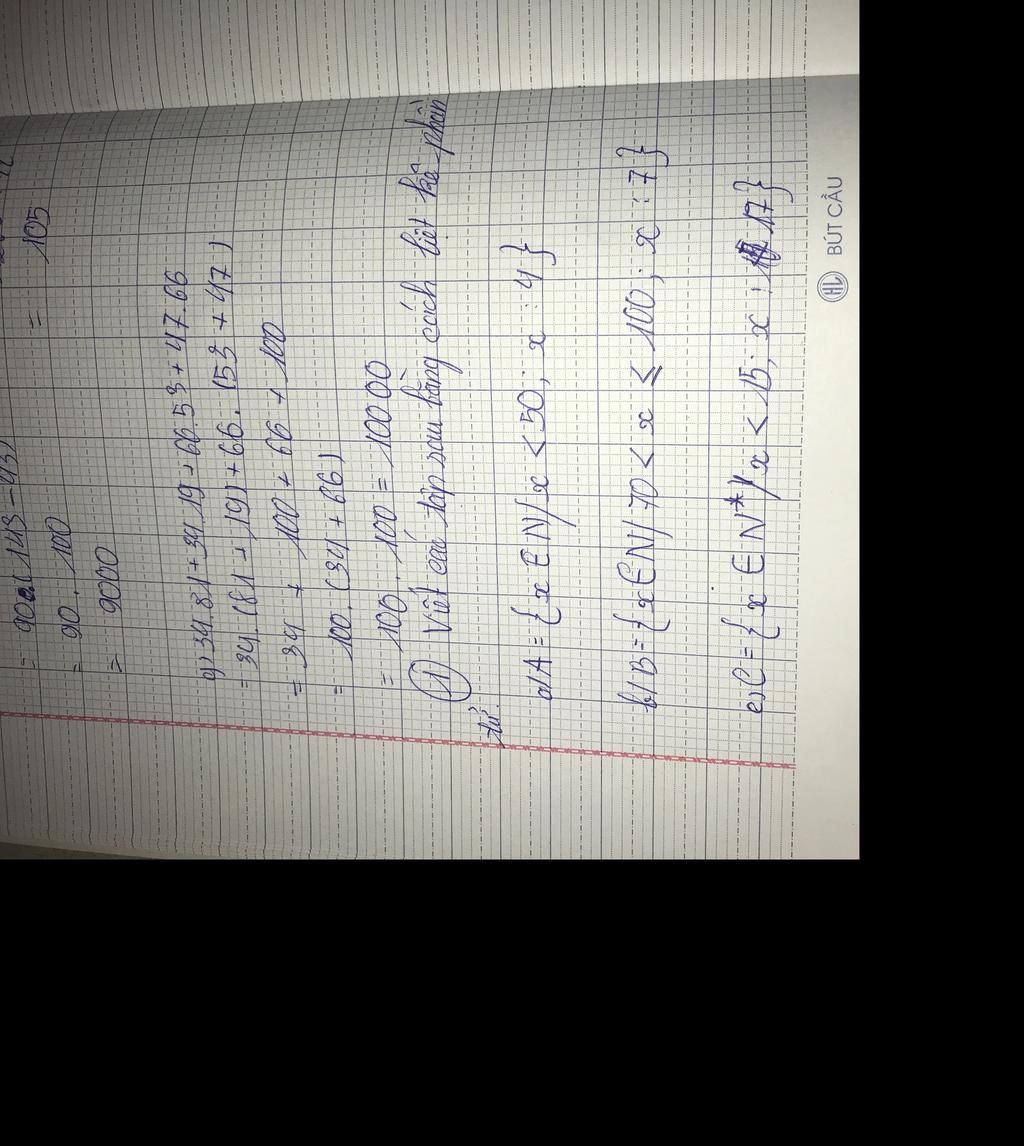 = 90.(143-43)
= 90.100
= 9000
= 105
g) 34.81+34.19+66.53+47.66
= 34.(81+19)+66.(53+47)
= 34 + 100 + 66 + 100
= 100.(34+66)
= 100.100 = 10000
① Viết các tập sau bằng cách liệt kê phần
tử.
a/ A = {x ∈ N/ x < 50; x : 4}
b/ B = {x ∈ N/ 70 < x ≤ 100; x : 7}
c) C = {x ∈ N*/ x < 15; x : 17}
HL BÚT CẦU